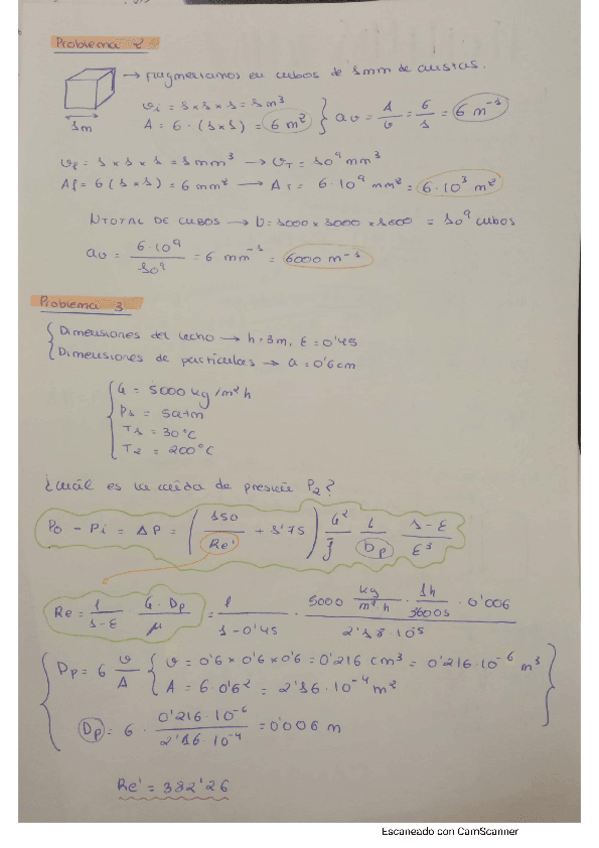 Problema 2
→ fragmentamos en cubos de 1mm de aristas.
1m
Vi = 1 x 1 x 1 = 1 m³
A = 6 · (1 x 1) = 6 m²
av = A/V = 6/1 = 6 m⁻¹
Vf = 1 x 1 x 1 = 1 mm³ → VT = 10⁹ mm³
Af = 6 (1 x 1) = 6 mm² → AT = 6·10⁹ mm² = 6·10³ m²
NTOTAL DE CUBOS → D = 1000 x 1000 x 1000 = 10⁹ cubos
av = 6·10⁹/10⁹ = 6 mm⁻¹ = 6000 m⁻¹
Problema 3
Dimensiones del lecho → h = 3m, ε = 0'45
Dimensiones de partículas → a = 0'6cm
G = 5000 kg/m²h
P1 = 5atm
T1 = 30°C
T2 = 200°C
¿Cuál es la caída de presión P2?
Po - Pi = ΔP = (150/Re' + 1'75) G²/ρ̄ L/Dp 1-ε/ε³
Re = 1/1-ε G·Dp/μ = 1/1-0'45 · 5000 kg/m²h · 1h/3600s · 0'006/2'18·10⁻⁵
Dp = 6 V/A
V = 0'6 x 0'6 x 0'6 = 0'216 cm³ = 0'216·10⁻⁶ m³
A = 6·0'6² = 2'16·10⁻⁴ m²
Dp = 6 · 0'216·10⁻⁶/2'16·10⁻⁴ = 0'006 m
Re' = 382'26
Escaneado con CamScanner